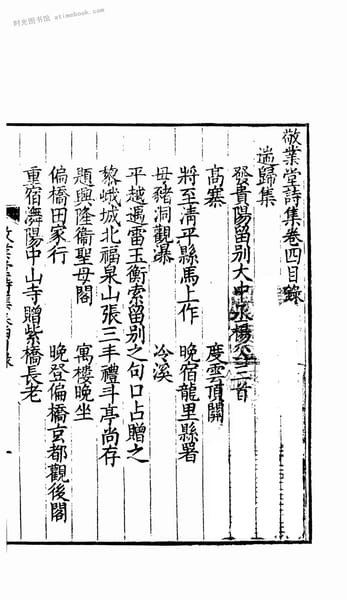 时光图书馆 atimebook.com
敬業堂詩集卷四目錄
遄歸集
發貴陽留別大中丞楊公三首
高寨 度雲頂關
將至清平縣馬上作 晚宿龍里縣署
母豬洞觀瀑 冷溪
平越遇雷玉衡索留別之句口占贈之
黎峨城北福泉山張三丰禮斗亭尚存
題興隆衞聖母閣 寓樓晚坐
偏橋田家行 晚登偏橋京都觀後閣
重宿㵲陽中山寺贈紫橋長老